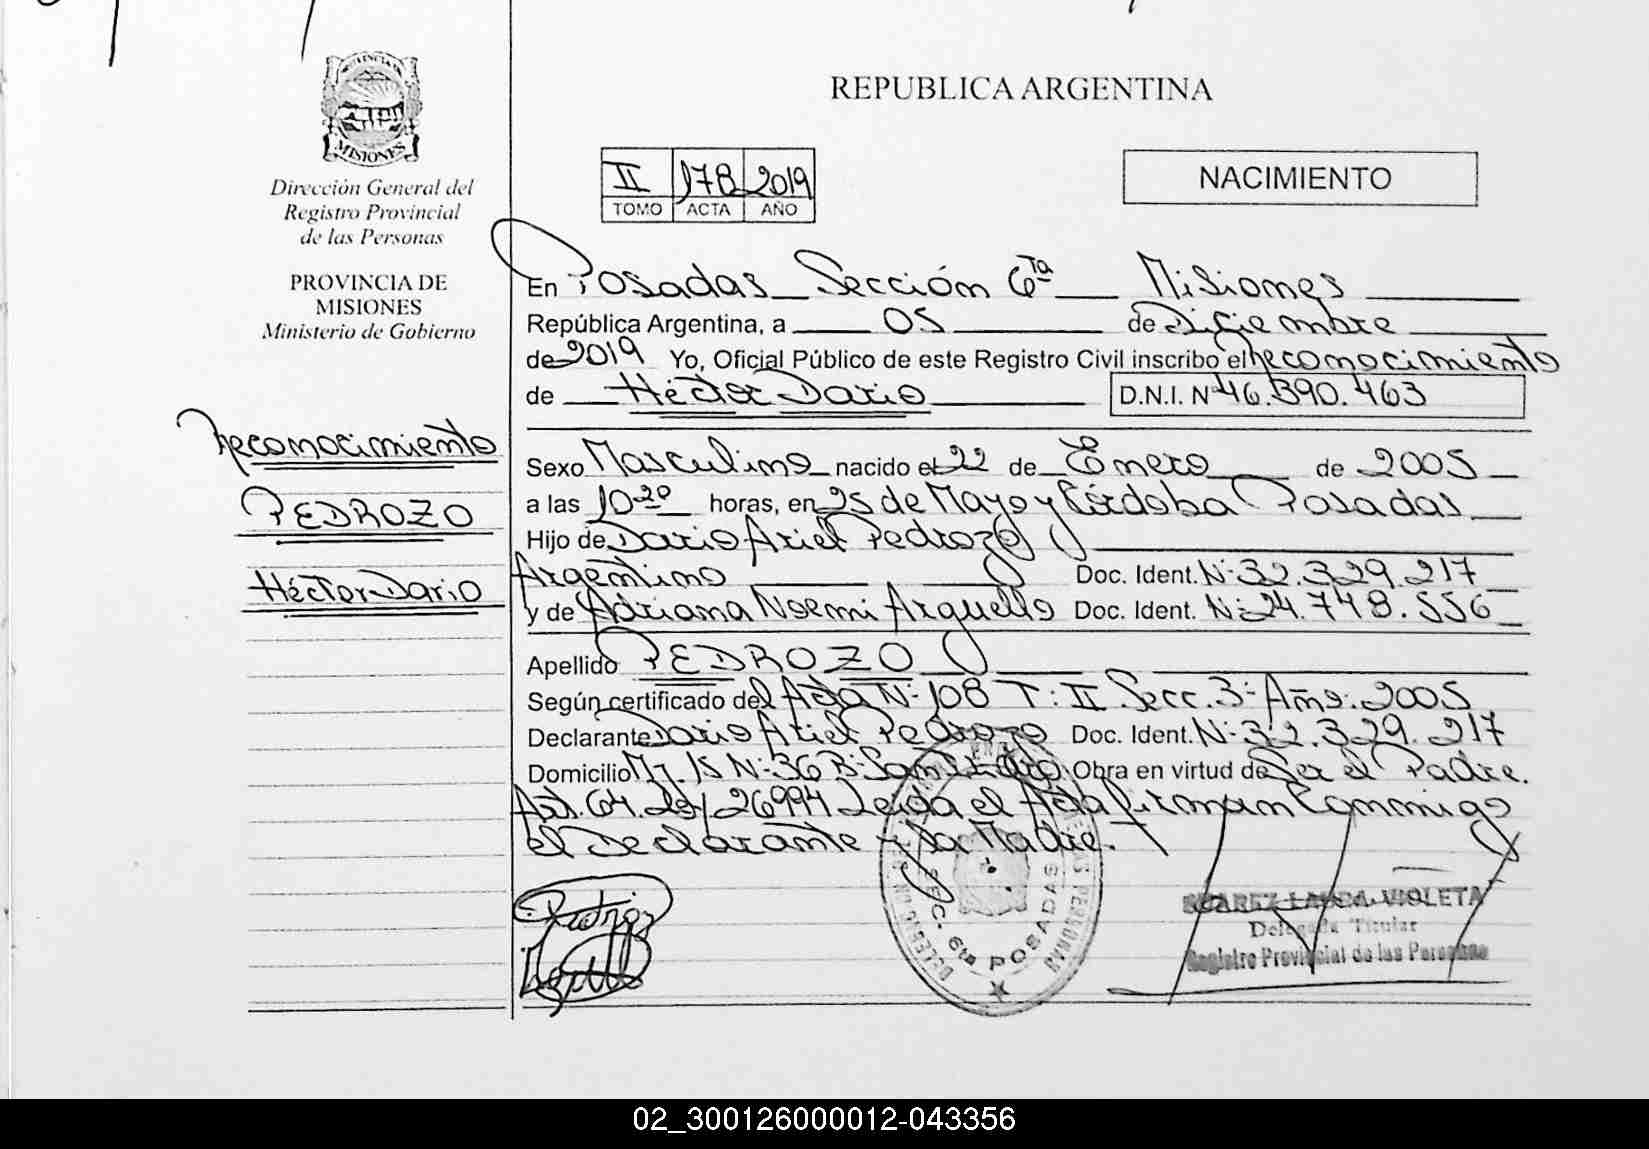 PROVINCIA DE
MISIONES
Dirección General del
Registro Provincial
de las Personas
PROVINCIA DE
MISIONES
Ministerio de Gobierno
Reconocimiento
PEDROZO
Héctor Dario
REPUBLICA ARGENTINA
II 178 2019
TOMO ACTA AÑO
NACIMIENTO
En Posadas Sección 6ta Misiones
República Argentina, a 05 de Diciembre
de 2019 Yo, Oficial Público de este Registro Civil inscribo el Reconocimiento
de Héctor Dario D.N.I. Nº 46.390.463
Sexo Masculino nacido el 22 de Enero de 2005
a las 10.20 horas, en 25 de Mayo y Córdoba Posadas
Hijo de Dario Ariel Pedrozo
Argentino Doc. Ident. Nº 32.329.217
y de Adriana Noemi Arguello Doc. Ident. Nº 24.748.556
Apellido PEDROZO
Según certificado del Acta Nº 108 T: II Secc. 3ª Año: 2005
Declarante Dario Ariel Pedrozo Doc. Ident. Nº 32.329.217
Domicilio Mz 15 Nº 36 Bº Obra en virtud de Ser el Padre.
Art. 64. Ley 26994 Leida el Acta firman Conmigo
el Declarante y la Madre.
SEC. 6ta POSADAS
SUAREZ LAURA VIOLETA
Delegada Titular
Registro Provincial de las Personas
02_300126000012-043356